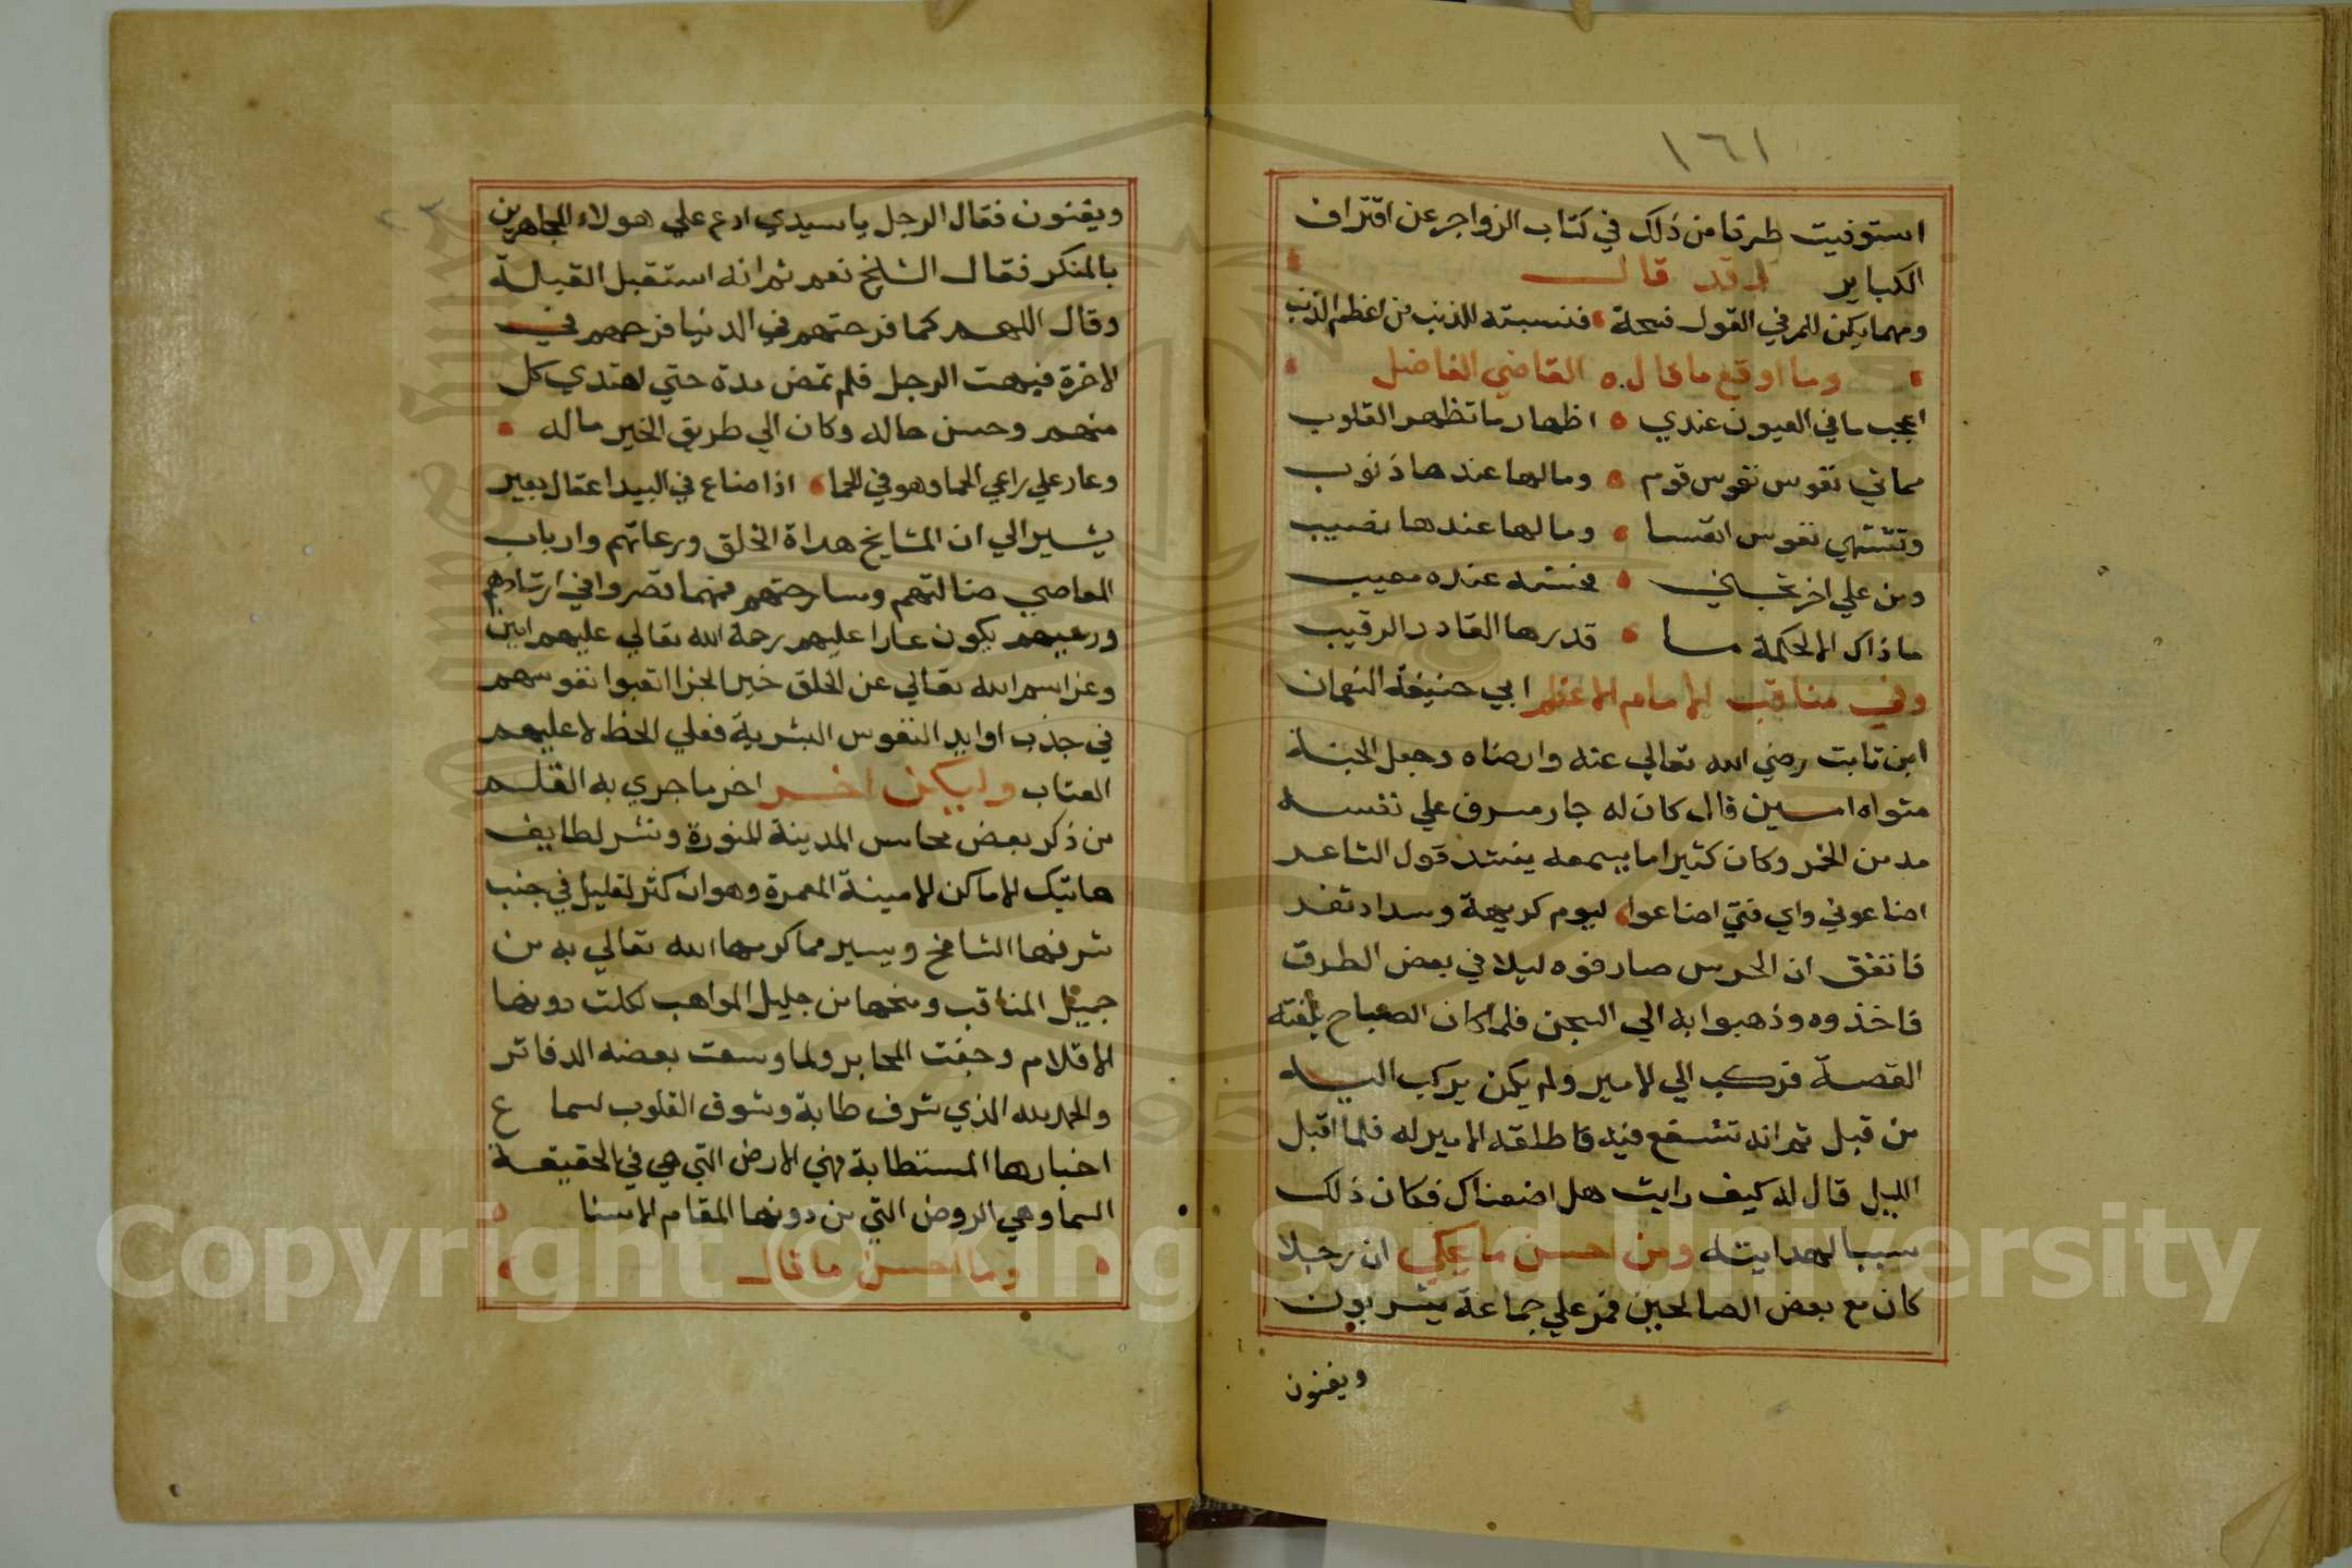 ١٦١
استوفيت طرفا من ذلك في كتاب الزواجر عن اقتراف
الكباير وقد قالـــ
ومهما يكن للمر في القول فسحة فنسبته للذنب من اعظم الذنب
وما اوقع ما قال القاضي الفاضل
اعجب ما في العيون عندي اظهار ما تظهر القلوب
نفوس نفوس قوم ومالها عندها ذنوب
وتشتهي نفوس انفسا ومالها عندها نصيب
ومن علي اخر عنده معيب
ما ذاك الا لحكمة ما قدرها القادر الرقيب
وفي مناقب الامام الاعظم ابي حنيفة النعمان
ابن ثابت رضي الله تعالي عنه وارضاه وجعل الجنة
متواه امين قال كان له جار مسرف علي نفسه
مدمن الخمر وكان كثيرا ما يسمعه ينشد قول الشاعر
اضاعوني واي فتي اضاعوا ليوم كريهة وسداد ثغر
فاتفق ان الحرس صادفوه ليلا في بعض الطرق
فاخذوه وذهبوا به الي السجن فلما كان الصباح بلغته
القصة فركب الي الامير ولم يكن يركب اليه
من قبل ثم انه تشفع فيه فاطلقه الامير له فلما اقبل
الليل قال له كيف رايت هل اضعناك فكان ذلك
سببا لهدايته ومن احسن ما يحكي ان رجلا
كان مع بعض الصالحين فمر علي جماعة يشربون
ويغنون
ويغنون فقال الرجل يا سيدي ادع علي هولاء المجاهرين
بالمنكر فقال الشيخ نعم ثم انه استقبل القبلة
وقال اللهم كما فرحتهم في الدنيا فرحهم في
الاخرة فبهت الرجل فلم تمض مدة حتي اهتدي كل
منهم وحسن حاله وكان الي طريق الخير ماله
وعار علي راعي الحما وهو في الحما اذا ضاع في البيدا عقال بعير
يشير الي ان المشايخ هداة الخلق ورعاتهم وارباب
المعاصي ضالتهم وسارحتهم فمهما قصروا في ارشادهم
ورعيهم يكون عارا عليهم رحمة الله تعالي عليهم امين
وعز اسم الله تعالي عن الخلق خير الجزا اتعبوا نفوسهم
في جذب اوابد النفوس البشرية فعلي الحظ لا عليهم
العتاب وليكن اخــر اخر ما جري به القلم
من ذكر بعض محاسن المدينة المنورة ونشر لطايف
هاتيك الاماكن الامينة المعمرة وهو ان كثر لقليل في جنب
شرفها الشامخ ويسير مما كرمها الله تعالي به من
جميل المناقب ومنحها من جليل المواهب لكلت دونها
الاقلام وجفت المحابر ولما وسعت بعضه الدفاتر
والحمد لله الذي شرف طابة وشوق القلوب لسما ع
اخبارها المستطابة فهي الارض التي هي في الحقيقة
السما وهي الروض التي من دونها المقام الاسنا
وما احسن ما قالـــ
Copyright © King Saud University